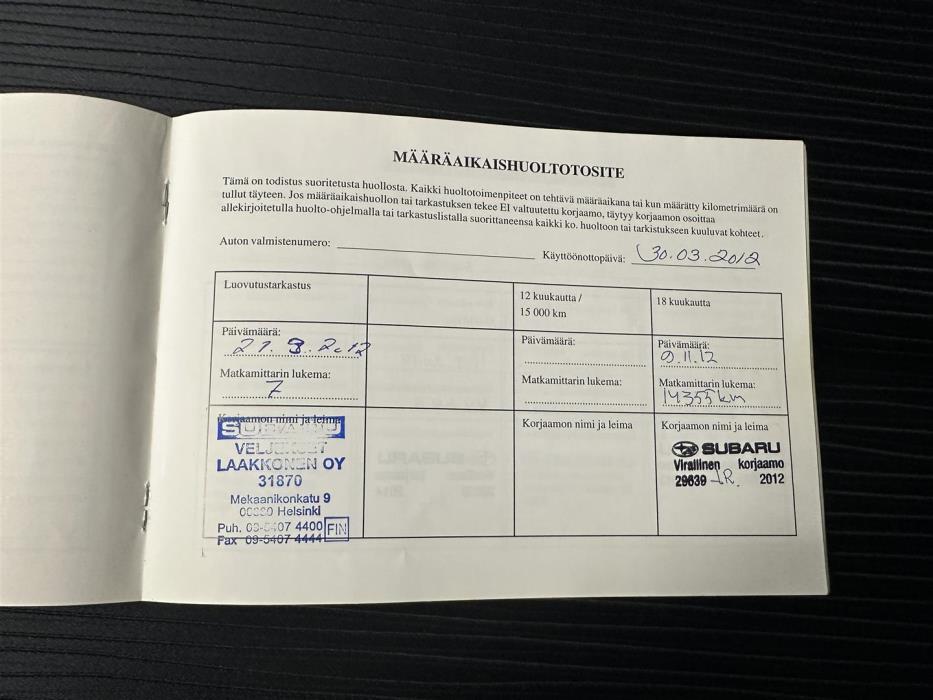 MÄÄRÄAIKAISHUOLTOTOSITE
Tämä on todistus suoritetusta huollosta. Kaikki huoltotoimenpiteet on tehtävä määräaikana tai kun määrätty kilometrimäärä on
tullut täyteen. Jos määräaikaishuollon tai tarkastuksen tekee EI valtuutettu korjaamo, täytyy korjaamon osoittaa
allekirjoitetulla huolto-ohjelmalla tai tarkastuslistalla suorittaneensa kaikki ko. huoltoon tai tarkistukseen kuuluvat kohteet.
Auton valmistenumero:
Käyttöönottopäivä: 30.03.2012
Luovutustarkastus
12 kuukautta /
15 000 km
18 kuukautta
Päivämäärä:
21.3.2012
Matkamittarin lukema:
7
Päivämäärä:
Matkamittarin lukema:
Päivämäärä:
9.11.12
Matkamittarin lukema:
14355 km
Korjaamon nimi ja leima
SUBARU
VELJEKSET
LAAKKONEN OY
31870
Mekaanikonkatu 9
Helsinki
Puh. 09-5407 4400 FIN
Fax 09-5407 4444
Korjaamon nimi ja leima
Korjaamon nimi ja leima
SUBARU
Virallinen korjaamo
29639 2012